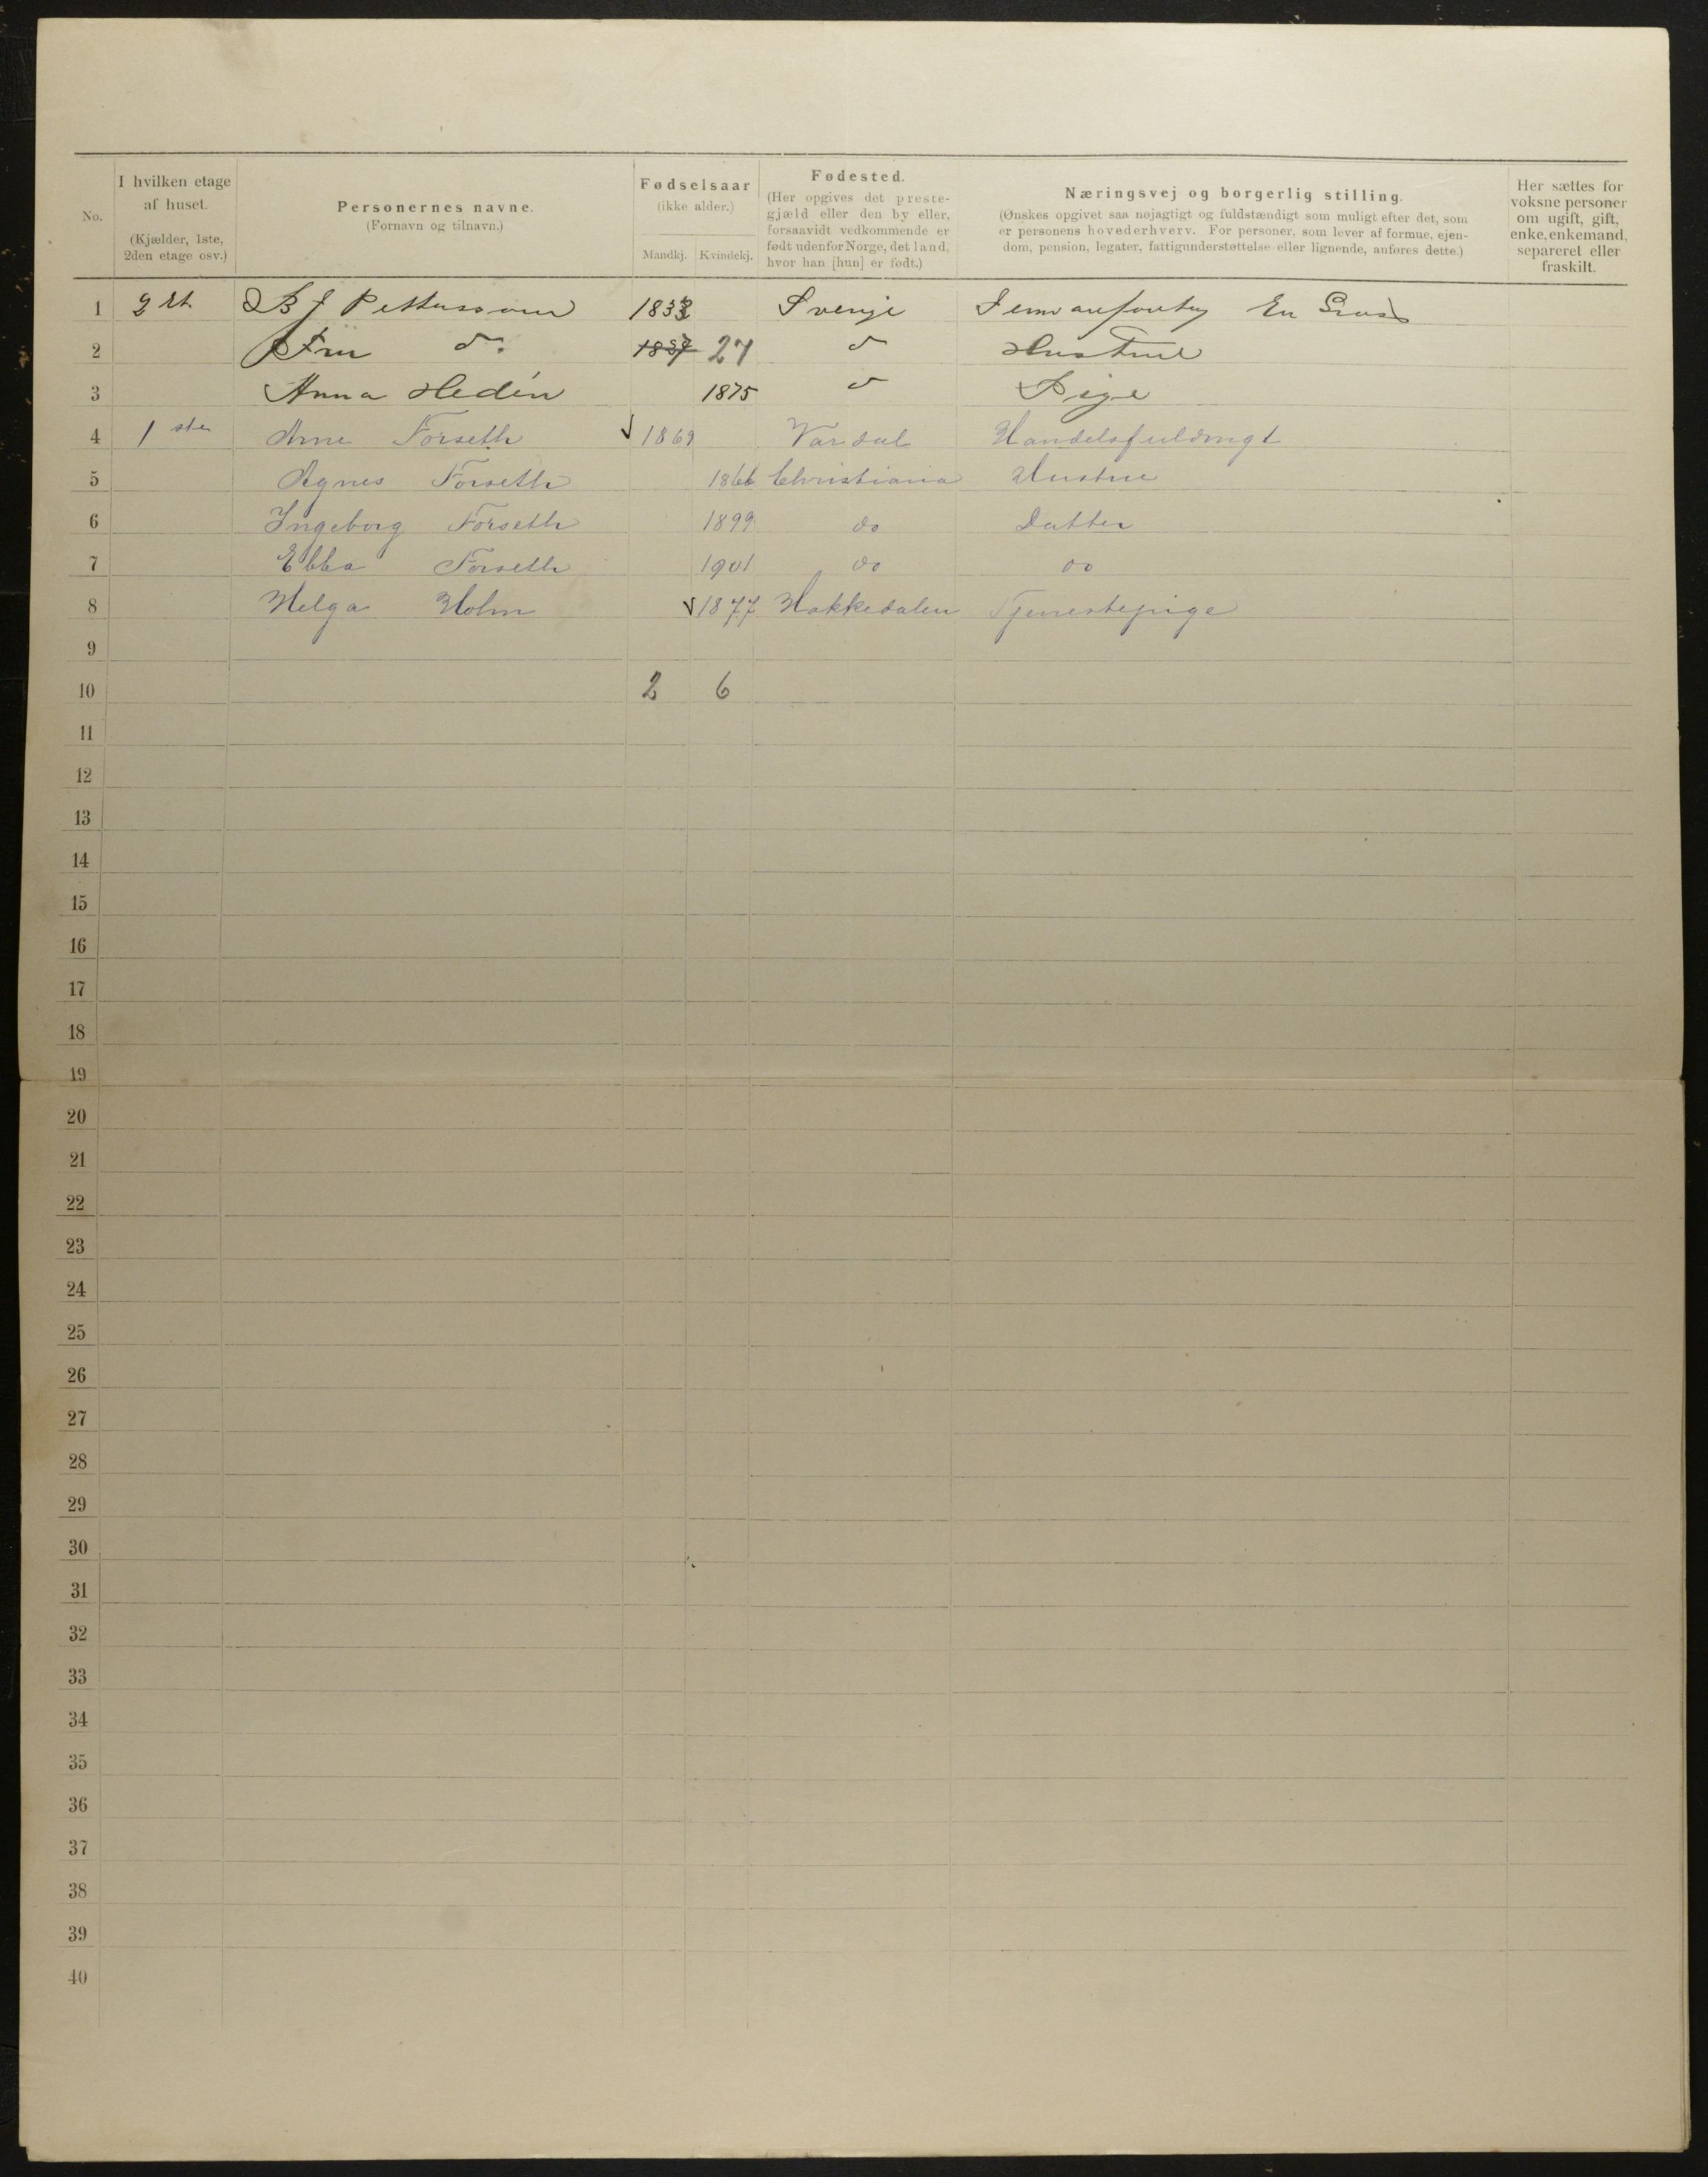 No.
I hvilken etage
af huset.
(Kjælder, 1ste,
2den etage osv.)
Personernes navne.
(Fornavn og tilnavn.)
Fødselsaar
(ikke alder.)
Mandkj. Kvindekj.
Fødested.
(Her opgives det preste-
gjæld eller den by eller,
forsaavidt vedkommende er
født udenfor Norge, det land,
hvor han [hun] er født.)
Næringsvej og borgerlig stilling.
(Ønskes opgivet saa nøjagtigt og fuldstændigt som muligt efter det, som
er personens hovederhverv. For personer, som lever af formue, ejen-
dom, pension, legater, fattigunderstøttelse eller lignende, anføres dette.)
Her sættes for
voksne personer
om ugift, gift,
enke, enkemand,
separeret eller
fraskilt.
1 2 B J Pettersson 1833 Sverige En Gros
2 Fru do 1837 27 do Hustrue
3 Anna Hedén 1875 do Pige
4 1ste Arne Forseth 1869 Vardal Handelsfuldmgt
5 Agnes Forseth 1866 Christiania Hustrue
6 Ingeborg Forseth 1899 do Datter
7 Ebba Forseth 1901 do do
8 Helga Holm 1877 Hakkedalen Tjenestepige
9
10 2 6
11
12
13
14
15
16
17
18
19
20
21
22
23
24
25
26
27
28
29
30
31
32
33
34
35
36
37
38
39
40